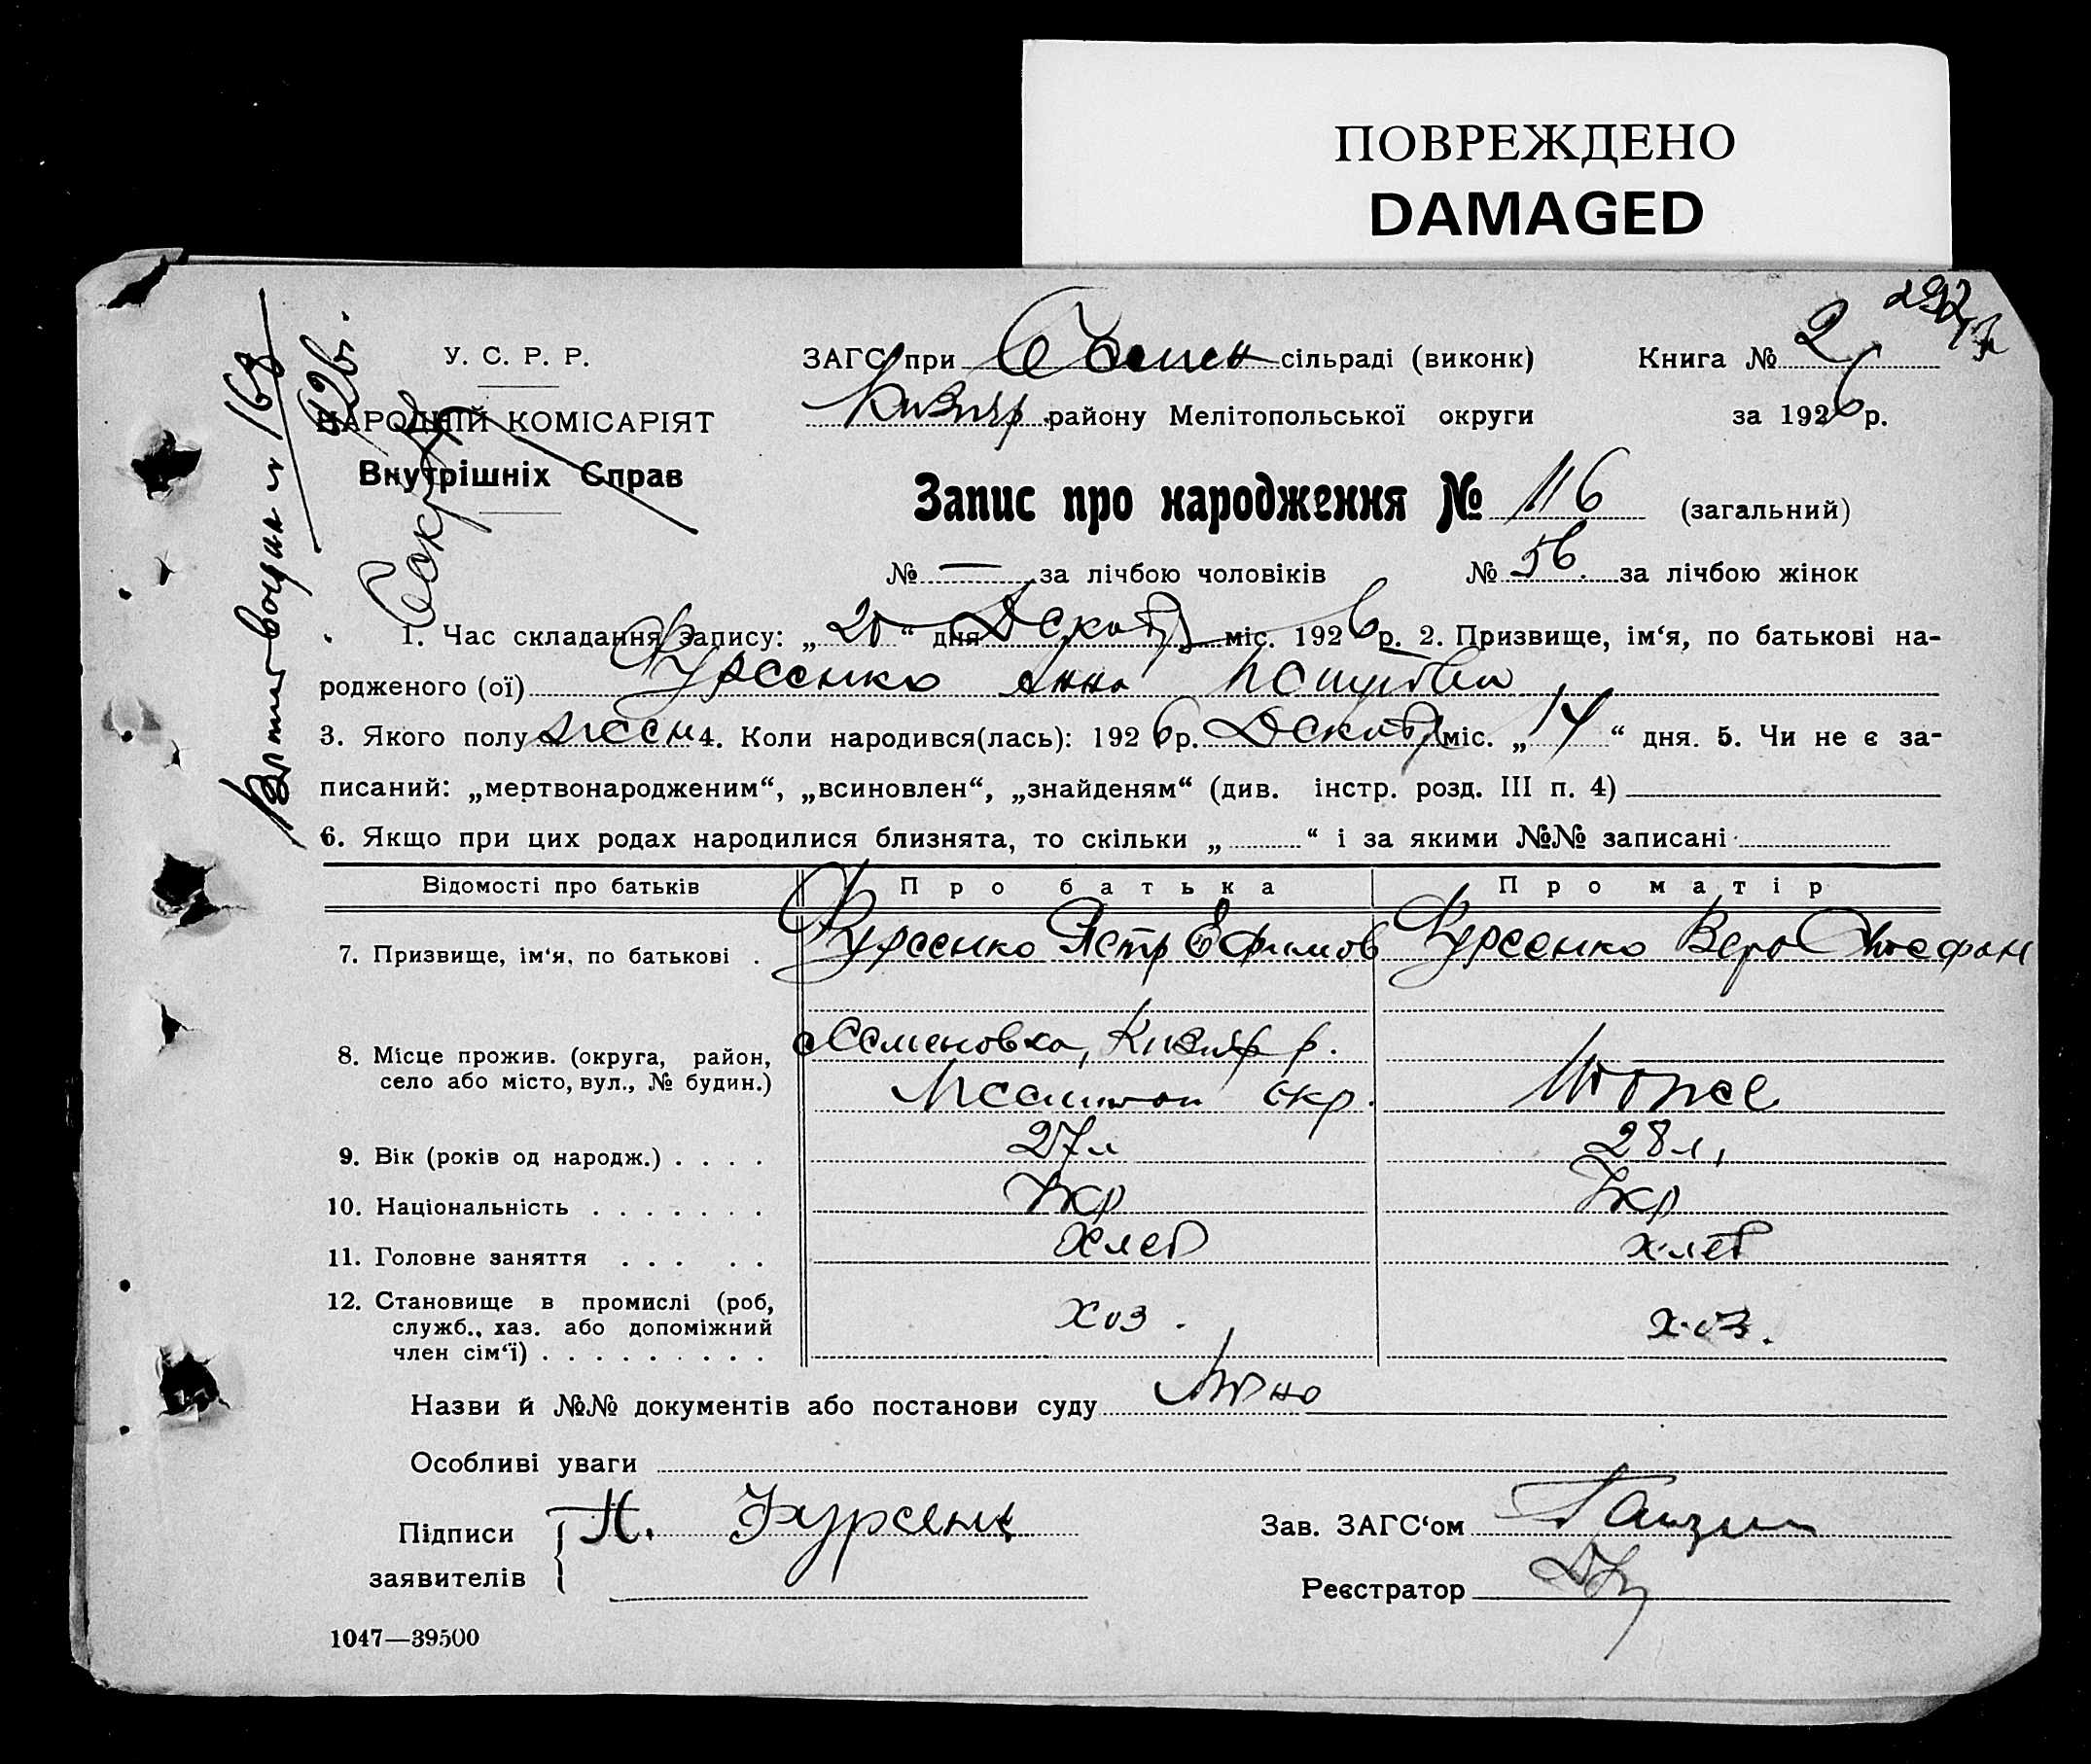 ПОВРЕЖДЕНО
DAMAGED
У. С. Р. Р.
НАРОДНІЙ КОМІСАРІЯТ
Внутрішніх Справ
ЗАГС при сільраді (виконк)
Кизияр. району Мелітопольської округи
Книга № 2
за 1926 р.
Запис про народження № 116 (загальний)
№ — за лічбою чоловіків № 56. за лічбою жінок
1. Час складання запису: „20“ дня Декабр міс. 1926 р. 2. Призвище, ім‘я, по батькові на-
родженого (ої) Фурсенко Анна
3. Якого полу жен 4. Коли народився(лась): 1926 р. Декабр міс. „14“ дня. 5. Чи не є за-
писаний: „мертвонародженим“, „всиновлен“, „знайденям“ (див. інстр. розд. III п. 4)
6. Якщо при цих родах народилися близнята, то скільки „ “ і за якими №№ записані
Відомості про батьків Про батька Про матір
7. Призвище, ім‘я, по батькові . Фурсенко Петр Ефимов Фурсенко Вера
8. Місце прожив. (округа, район, село або місто, вул., № будин.) Семеновка, Кизияр р.
окр. тоже
9. Вік (років од народж.) . . . . 27 л 28 л,
10. Національність . . . . . . . Укр Укр
11. Головне заняття . . . . . Хлеб хлеб
12. Становище в промислі (роб, служб., хаз. або допоміжний член сім‘ї) . . . . . . . . . хоз. хоз.
Назви й №№ документів або постанови суду
Особливі уваги
Підписи заявителів П. Фурсенк
Зав. ЗАГС‘ом
Реєстратор
1047—39500